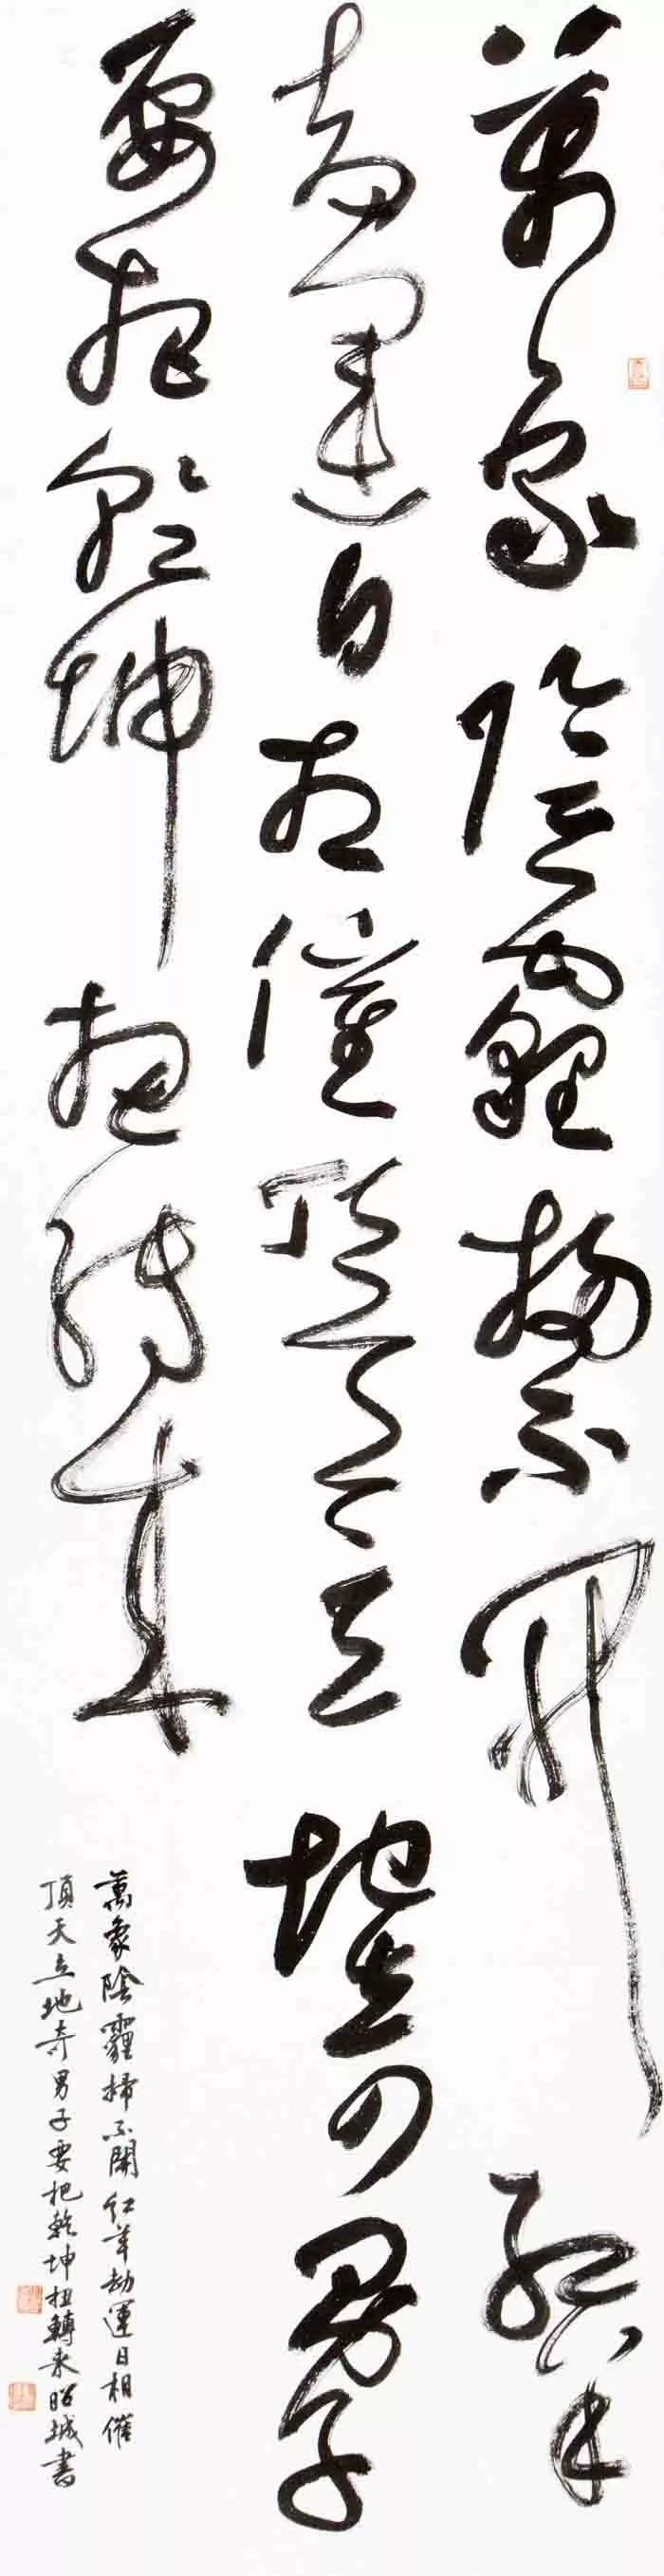 萬象陰霾掃不開紅羊
劫運日相催頂天立地奇男子
要把乾坤扭轉來
萬象陰霾掃不開紅羊劫運日相催
頂天立地奇男子要把乾坤扭轉來昭城書